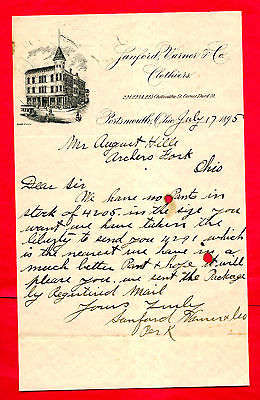 Sanford, Varner & Co
Clothiers.
Portsmouth, Ohio, July 17 1895
Mr August Hille
Archers Fork
Ohio
Dear Sir
We have no Pant in
stock of 4205 in the size you
want, we have taken the
liberty to send you 4291 which
is the nearest we have is a
much better Pant & hope it will
please you, we sent the Package
by Registered Mail
Yours Truly
Sanford Varner & Co
Per K